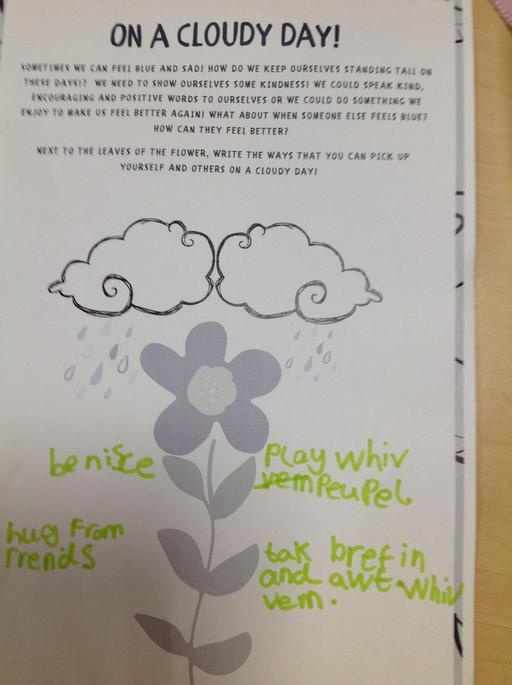 ON A CLOUDY DAY!
SOMETIMES WE CAN FEEL BLUE AND SAD! HOW DO WE KEEP OURSELVES STANDING TALL ON
THESE DAYS!? WE NEED TO SHOW OURSELVES SOME KINDNESS! WE COULD SPEAK KIND,
ENCOURAGING AND POSITIVE WORDS TO OURSELVES OR WE COULD DO SOMETHING WE
ENJOY TO MAKE US FEEL BETTER AGAIN! WHAT ABOUT WHEN SOMEONE ELSE FEELS BLUE?
HOW CAN THEY FEEL BETTER?
NEXT TO THE LEAVES OF THE FLOWER, WRITE THE WAYS THAT YOU CAN PICK UP
YOURSELF AND OTHERS ON A CLOUDY DAY!
be nisce
Play whiv
vem Peupel
hug From
Frends
tak bref in
and awt whiv
vem.